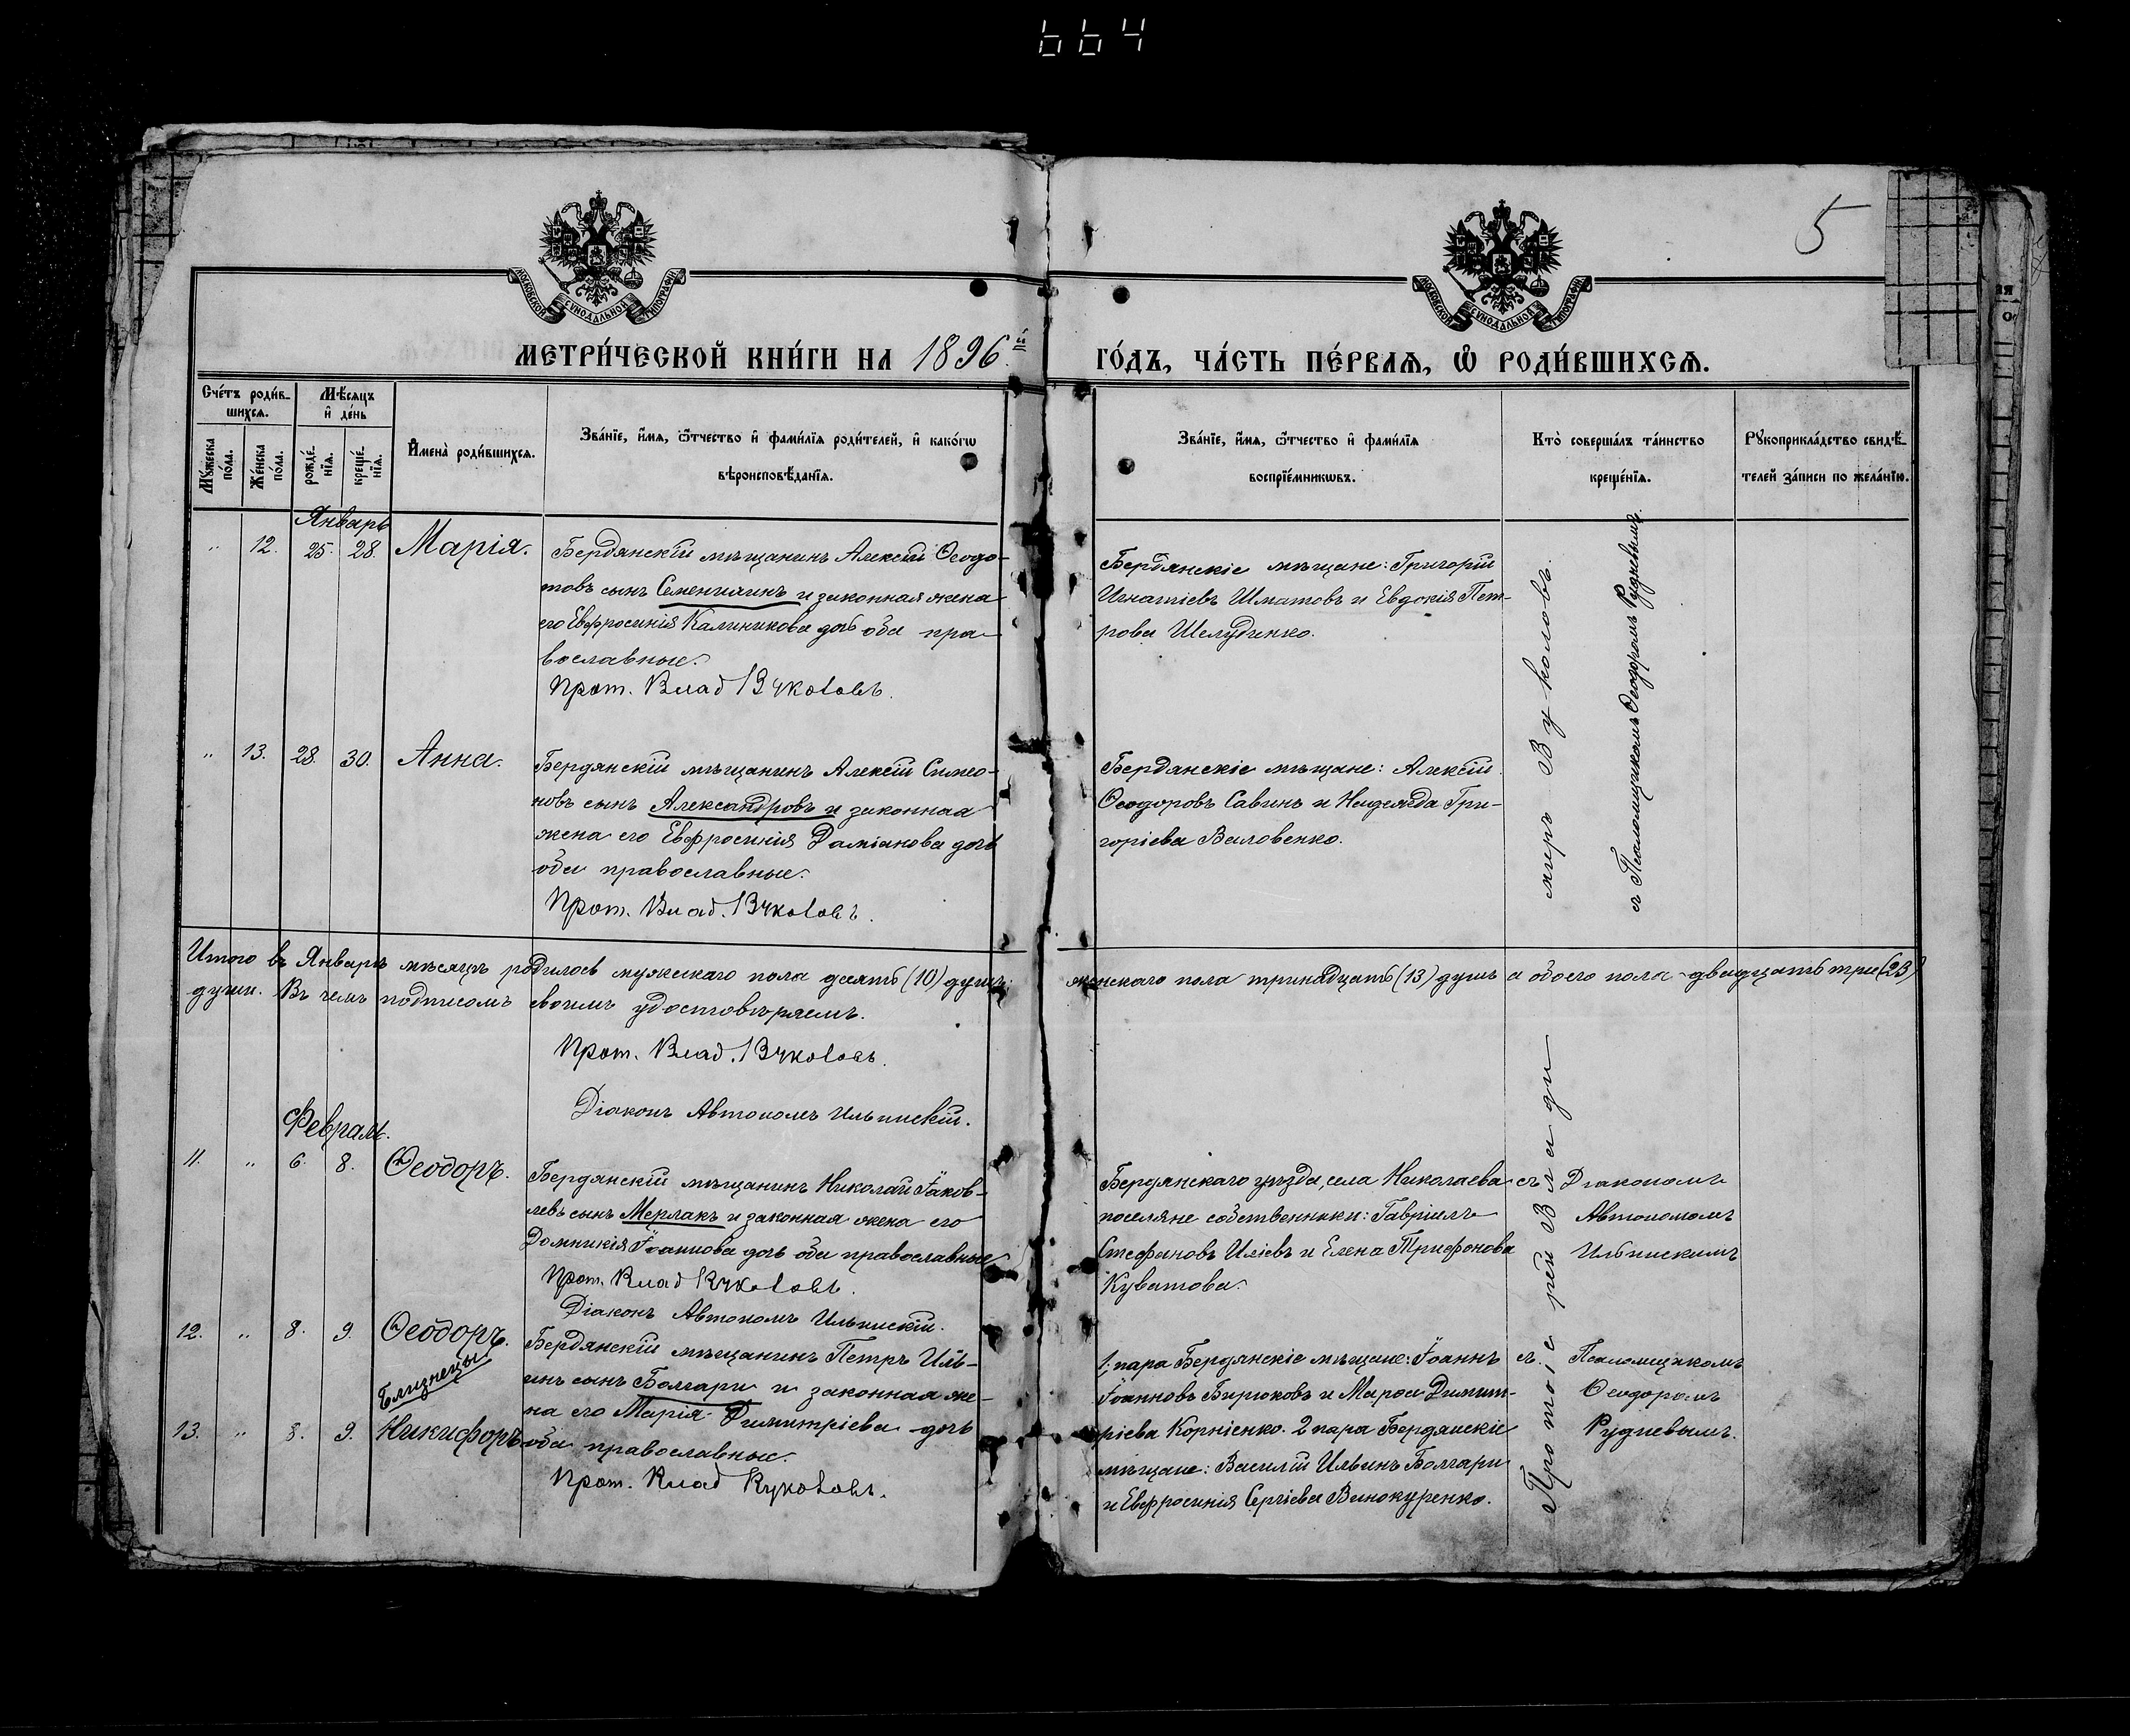 664
5
МОСКОВСКОЙ СУНОДАЛЬНОЙ ТИПОГРАФІИ
МОСКОВСКОЙ СУНОДАЛЬНОЙ ТИПОГРАФІИ
МЕТРИ́ЧЕСКОЙ КНИ́ГИ НА 1896й
ГО́ДЪ, ЧА́СТЬ ПЕ́РВАѦ, Ѡ҆ РОДИ́ВШИХСѦ.
Сче́тъ роди́в-
шихсѧ.
Мꙋ́жеска
по́ла.
Же́нска
по́ла.
Мѣ́сѧцъ
и҆ де́нь
рожде́-
нїѧ.
креще́-
нїѧ.
И҆мена̀ роди́вшихсѧ.
Зва́нїе, и҆́мѧ, ѻ҆́тчество и҆ фами́лїѧ роди́телей, и҆ како́гѡ
вѣроисповѣ́данїѧ.
Зва́нїе, и҆́мѧ, ѻ҆́тчество и҆ фами́лїѧ
воспрїе́мникѡвъ.
Кто̀ соверша́лъ та́инство
креще́нїѧ.
Рꙋкоприкла́дство свидѣ́-
телей за́писи по жела́нїю.
Январь
" 12. 25. 28. Марія.
Бердянскій мѣщанинъ Алексій Ѳеодо-
товъ сынъ Семенихинъ и законная жена
его Евфросинія Калиникова дочь оба пра-
вославные.
Прот. Влад Вуколовъ.
Бердянскіе мѣщане: Григорій
Игнатіевъ Шматовъ и Евдокія Пет-
рова Шелудинко.
" 13. 28. 30. Анна.
Бердянскій мѣщанинъ Алексій Симео-
новъ сынъ Александровъ и законная
жена его Евфросинія Даміанова дочь
оба православные.
Прот. Влад. Вуколовъ.
Бердянскіе мѣщане: Алексій
Ѳеодоровъ Савинъ и Надежда Гри-
горіева Валовенко.
Протоіерей Влади
миръ Вуколовъ.
съ Псаломщикомъ Ѳеодоромъ Рудневымъ.
Итого въ Январѣ мѣсяцѣ родилось мужескаго пола десять (10) душъ женскаго пола тринадцать (13) душъ а обоего пола двадцать три (23)
души. Въ чемъ подписомъ своимъ удостовѣряемъ.
Прот. Влад. Вуколовъ.
Діаконъ Автономъ Ильинскій.
Февраль.
11. " 6. 8. Ѳеодоръ.
Бердянскій мѣщанинъ Николай Іаков-
левъ сынъ Мерлакъ и законная жена его
Домникія Іоаннова дочь оба православные
Прот. Влад Вуколовъ.
Діаконъ Автономъ Ильинскій.
Бердянскаго уѣзда, села Николаева
поселяне собственники: Гавріилъ
Стефановъ Иліевъ и Елена Трифонова
Куватова.
съ Діакономъ
Автономомъ
Ильинскимъ
12. " 8. 9. Ѳеодоръ.
Близнецы
13. " 8. 9. Никифоръ
Бердянскій мѣщанинъ Петръ Иль-
инъ сынъ Болгари и законная же-
на его Марія Димитріева дочь
оба православные.
Прот. Влад Вуколовъ.
1. пара Бердянскіе мѣщане: Іоаннъ
Іоанновъ Бирюковъ и Марѳа Димит-
ріева Корніенко. 2 пара Бердянскіе
мѣщане: Василій Ильинъ Болгари
и Евфросинія Сергіева Винокуренко.
съ. Псаломщикомъ
Ѳеодоромъ
Рудневымъ.